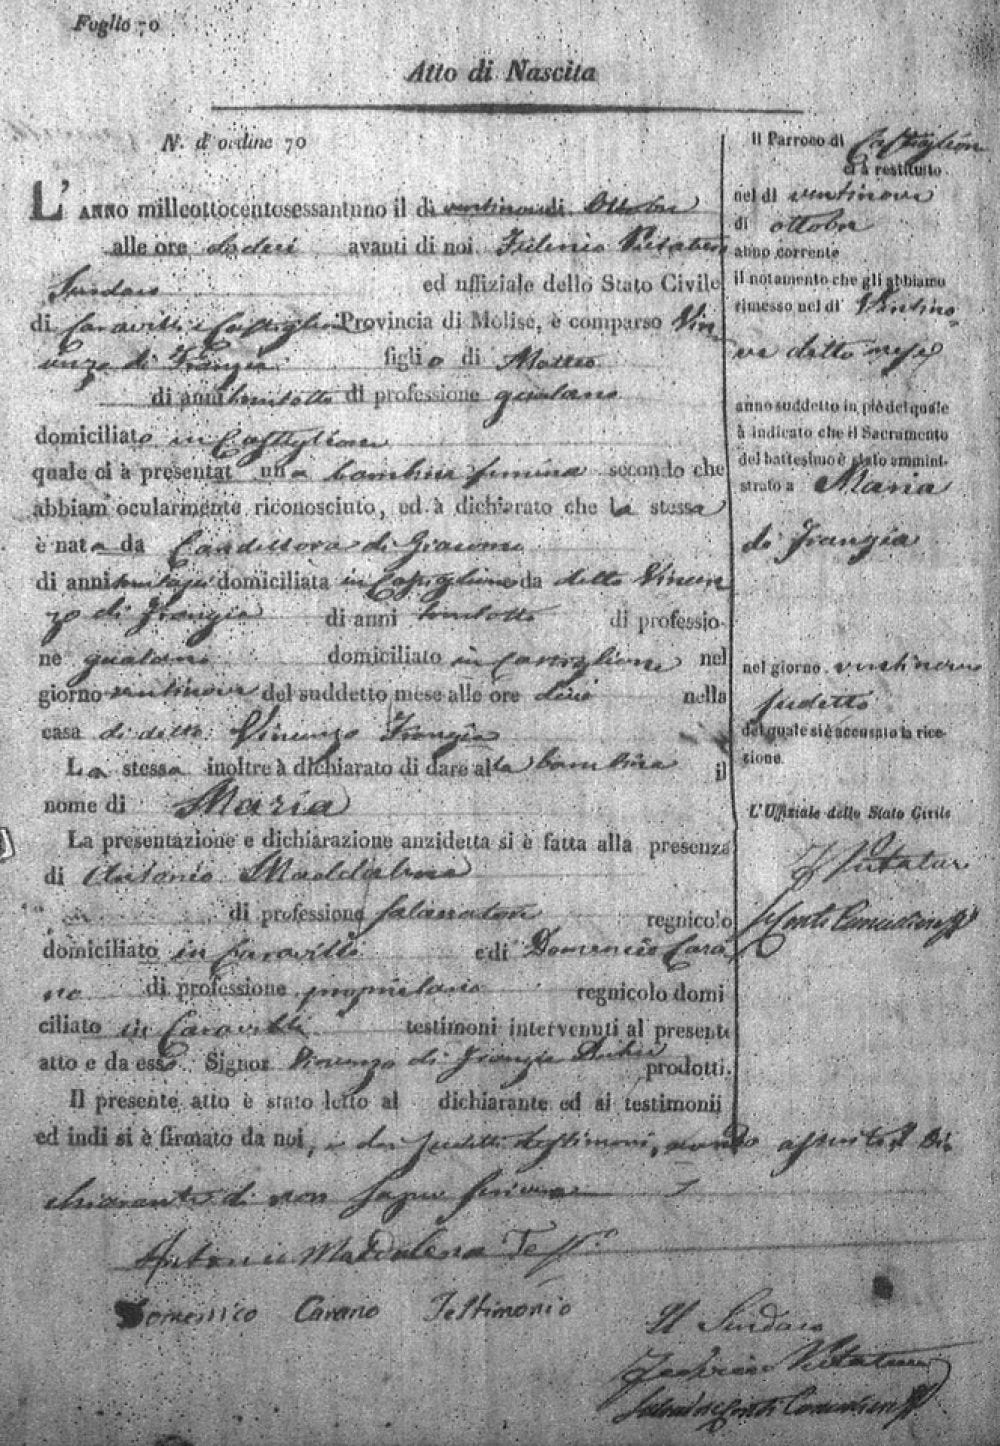 Foglio 70
Atto di Nascita
N. d'ordine 70
L'ANNO milleottocentosessantuno il dì ventinove di Ottobre
alle ore dodeci avanti di noi
Sindaco ed uffiziale dello Stato Civile
di Carovilli e Castiglione Provincia di Molise, è comparso Vin
cenzo di Frangia figlio di Matteo
di anni trentotto di professione gualano
domiciliato in Castiglione
quale ci à presentat una bambina femina secondo che
abbiam ocularmente riconosciuto, ed à dichiarato che la stessa
è nata da di Giacomo
di anni domiciliata in Castiglione da detto Vincen
zo di Frangia di anni trentotto di professio-
ne gualano domiciliato in Castiglione nel
giorno ventinove del suddetto mese alle ore dieci nella
casa di detto Vincenzo Frangia
La stessa inoltre à dichiarato di dare alla bambina il
nome di Maria
La presentazione e dichiarazione anzidetta si è fatta alla presenza
di Antonio Maddalena
di professione regnicolo
domiciliato in Carovilli e di Domenico Cara
no di professione proprietario regnicolo domi
ciliato in Carovilli testimoni intervenuti al presente
atto e da esso Signor Vincenzo di Frangia prodotti.
Il presente atto è stato letto al dichiarante ed ai testimonii
ed indi si è firmato da noi, e dai sudetti testimoni, avendo asserito il Di-
chiarante di non sapere scrivere
Antonio Maddalena Tes.
Domenico Carano Testimonio
Il Sindaco
Il Parroco di Castiglione
ci à restituito
nel dì ventinove
di ottobre
anno corrente
il notamento che gli abbiamo
rimesso nel dì Ventino-
ve detto mese
anno suddetto in piè del quale
à indicato che il Sacramento
del battesimo è stato ammini-
strato a Maria
di Frangia
nel giorno ventinove
sudetto
del quale si è accusato la rice-
zione.
L'Uffiziale dello Stato Civile